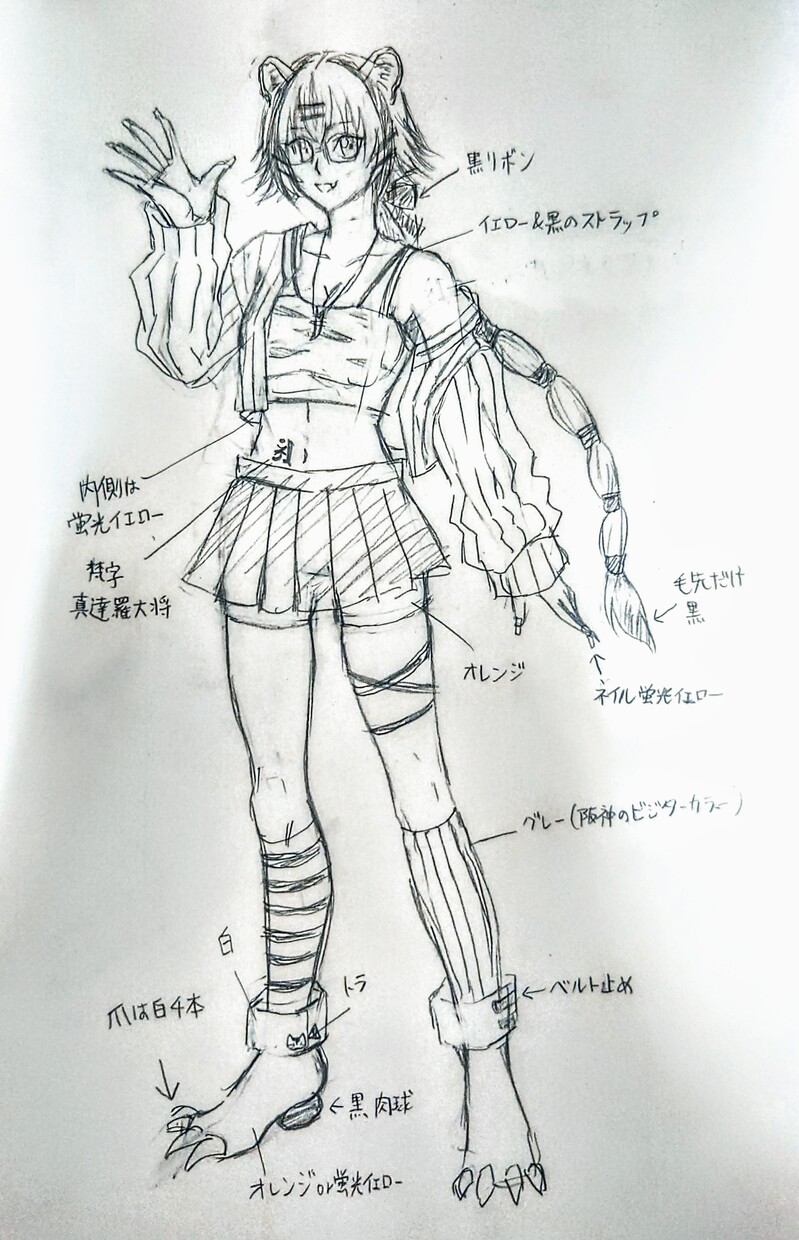 黒リボン
イエロー&黒のストラップ
内側は
蛍光イエロー
梵字
真達羅大将
毛先だけ
黒
オレンジ
ネイル蛍光イエロー
グレー(阪神のビジターカラー)
白
トラ
ベルト止め
爪は白4本
黒肉球
オレンジor蛍光イエロー